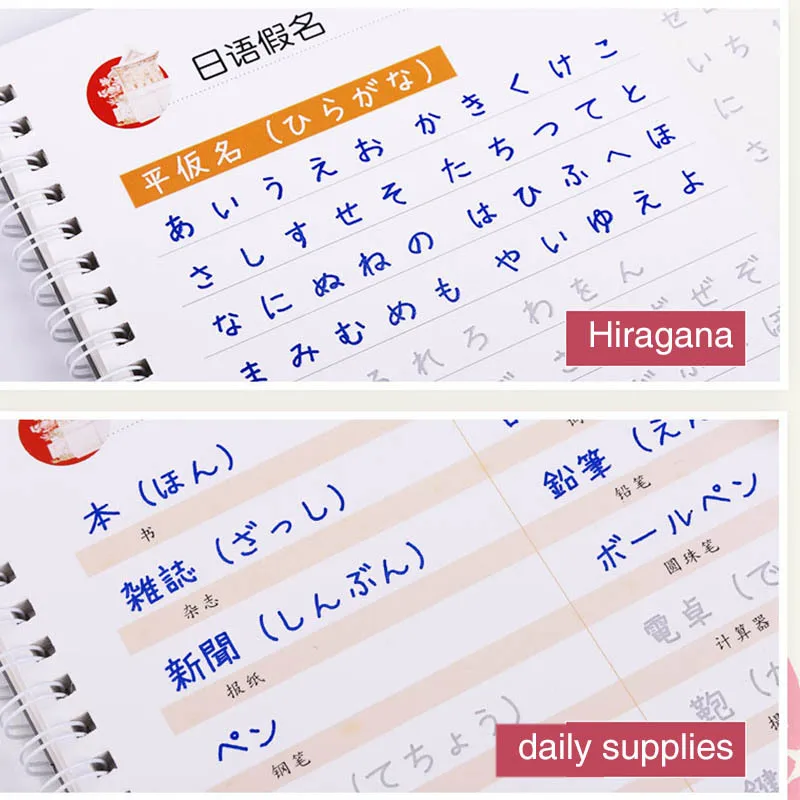 日语假名
平仮名（ひらがな）
あいうえお かきくけこ
さしすせそ たちつてと
なにぬねの はひふへほ
まみむめも やいゆえよ
るれろ わをん
Hiragana
本（ほん）
书
雑誌（ざっし）
杂志
新聞（しんぶん）
报纸
ペン
钢笔
（てちょう）
鉛筆（えん
铅笔
ボールペン
圆珠笔
電卓（で
计算器
鞄（か
鍵
daily supplies